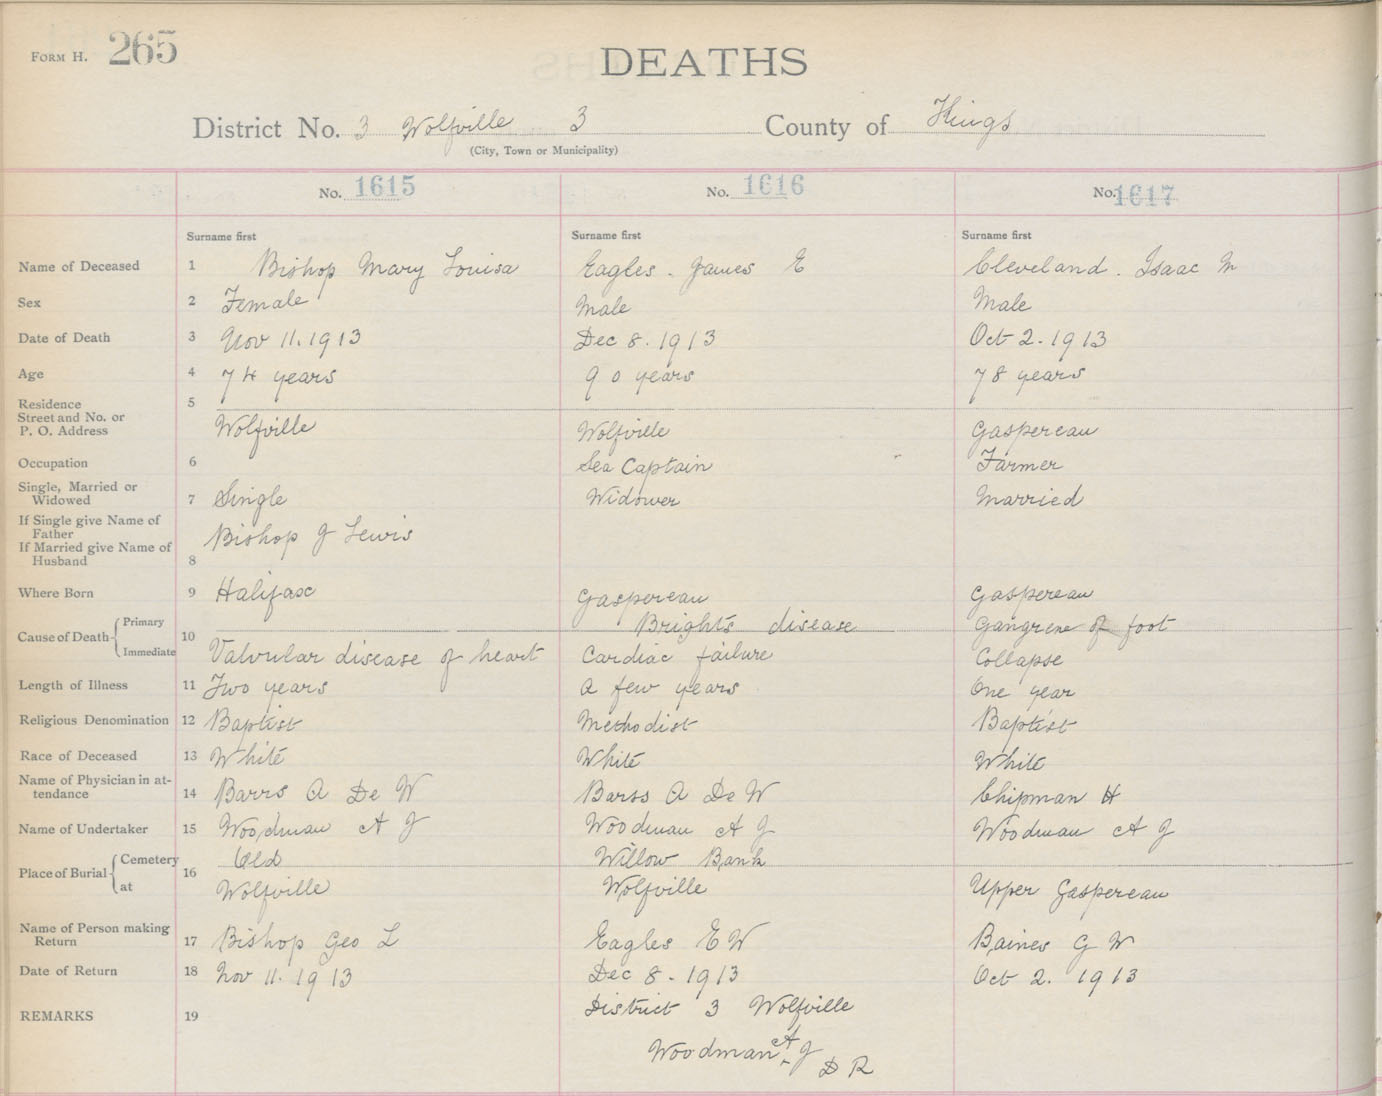 FORM H. 265
DEATHS
District No. 3 Wolfville 3 County of Kings
(City, Town or Municipality)
No. 1615 No. 1616 No. 1617
Surname first Surname first Surname first
Name of Deceased 1 Bishop Mary Louisa Eagles. James E Cleveland. Isaac M
Sex 2 Female Male Male
Date of Death 3 Nov 11. 1913 Dec 8. 1913 Oct 2. 1913
Age 4 74 years 90 years 78 years
Residence 5
Street and No. or
P. O. Address Wolfville Wolfville Gaspereau
Occupation 6 Sea Captain Farmer
Single, Married or
Widowed 7 Single Widower Married
If Single give Name of
Father
If Married give Name of
Husband 8 Bishop J Lewis
Where Born 9 Halifax Gaspereau Gaspereau
Cause of Death 10 Primary Brights disease Gangrene of foot
Immediate Valvular disease of heart Cardiac failure Collapse
Length of Illness 11 Two years A few years One year
Religious Denomination 12 Baptist Methodist Baptist
Race of Deceased 13 White White White
Name of Physician in at-
tendance 14 Barrs A De W Barss A De W Chipman H
Name of Undertaker 15 Woodman A J Woodman A J Woodman A J
Place of Burial 16 Cemetery Old Willow Bank
at Wolfville Wolfville Upper Gaspereau
Name of Person making
Return 17 Bishop Geo L Eagles E W Baines G W
Date of Return 18 Nov 11. 1913 Dec 8. 1913 Oct 2. 1913
REMARKS 19 District 3 Wolfville
Woodman A J
D R